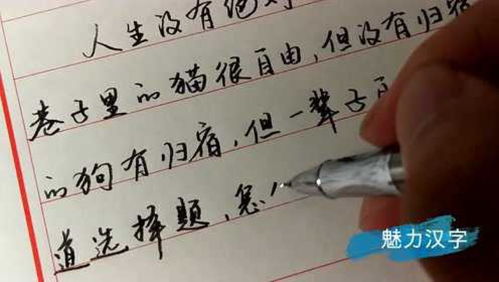 人生没有绝对
巷子里的猫很自由，但没有归宿
的狗有归宿，但一辈子
道选择题，怎
魅力汉字